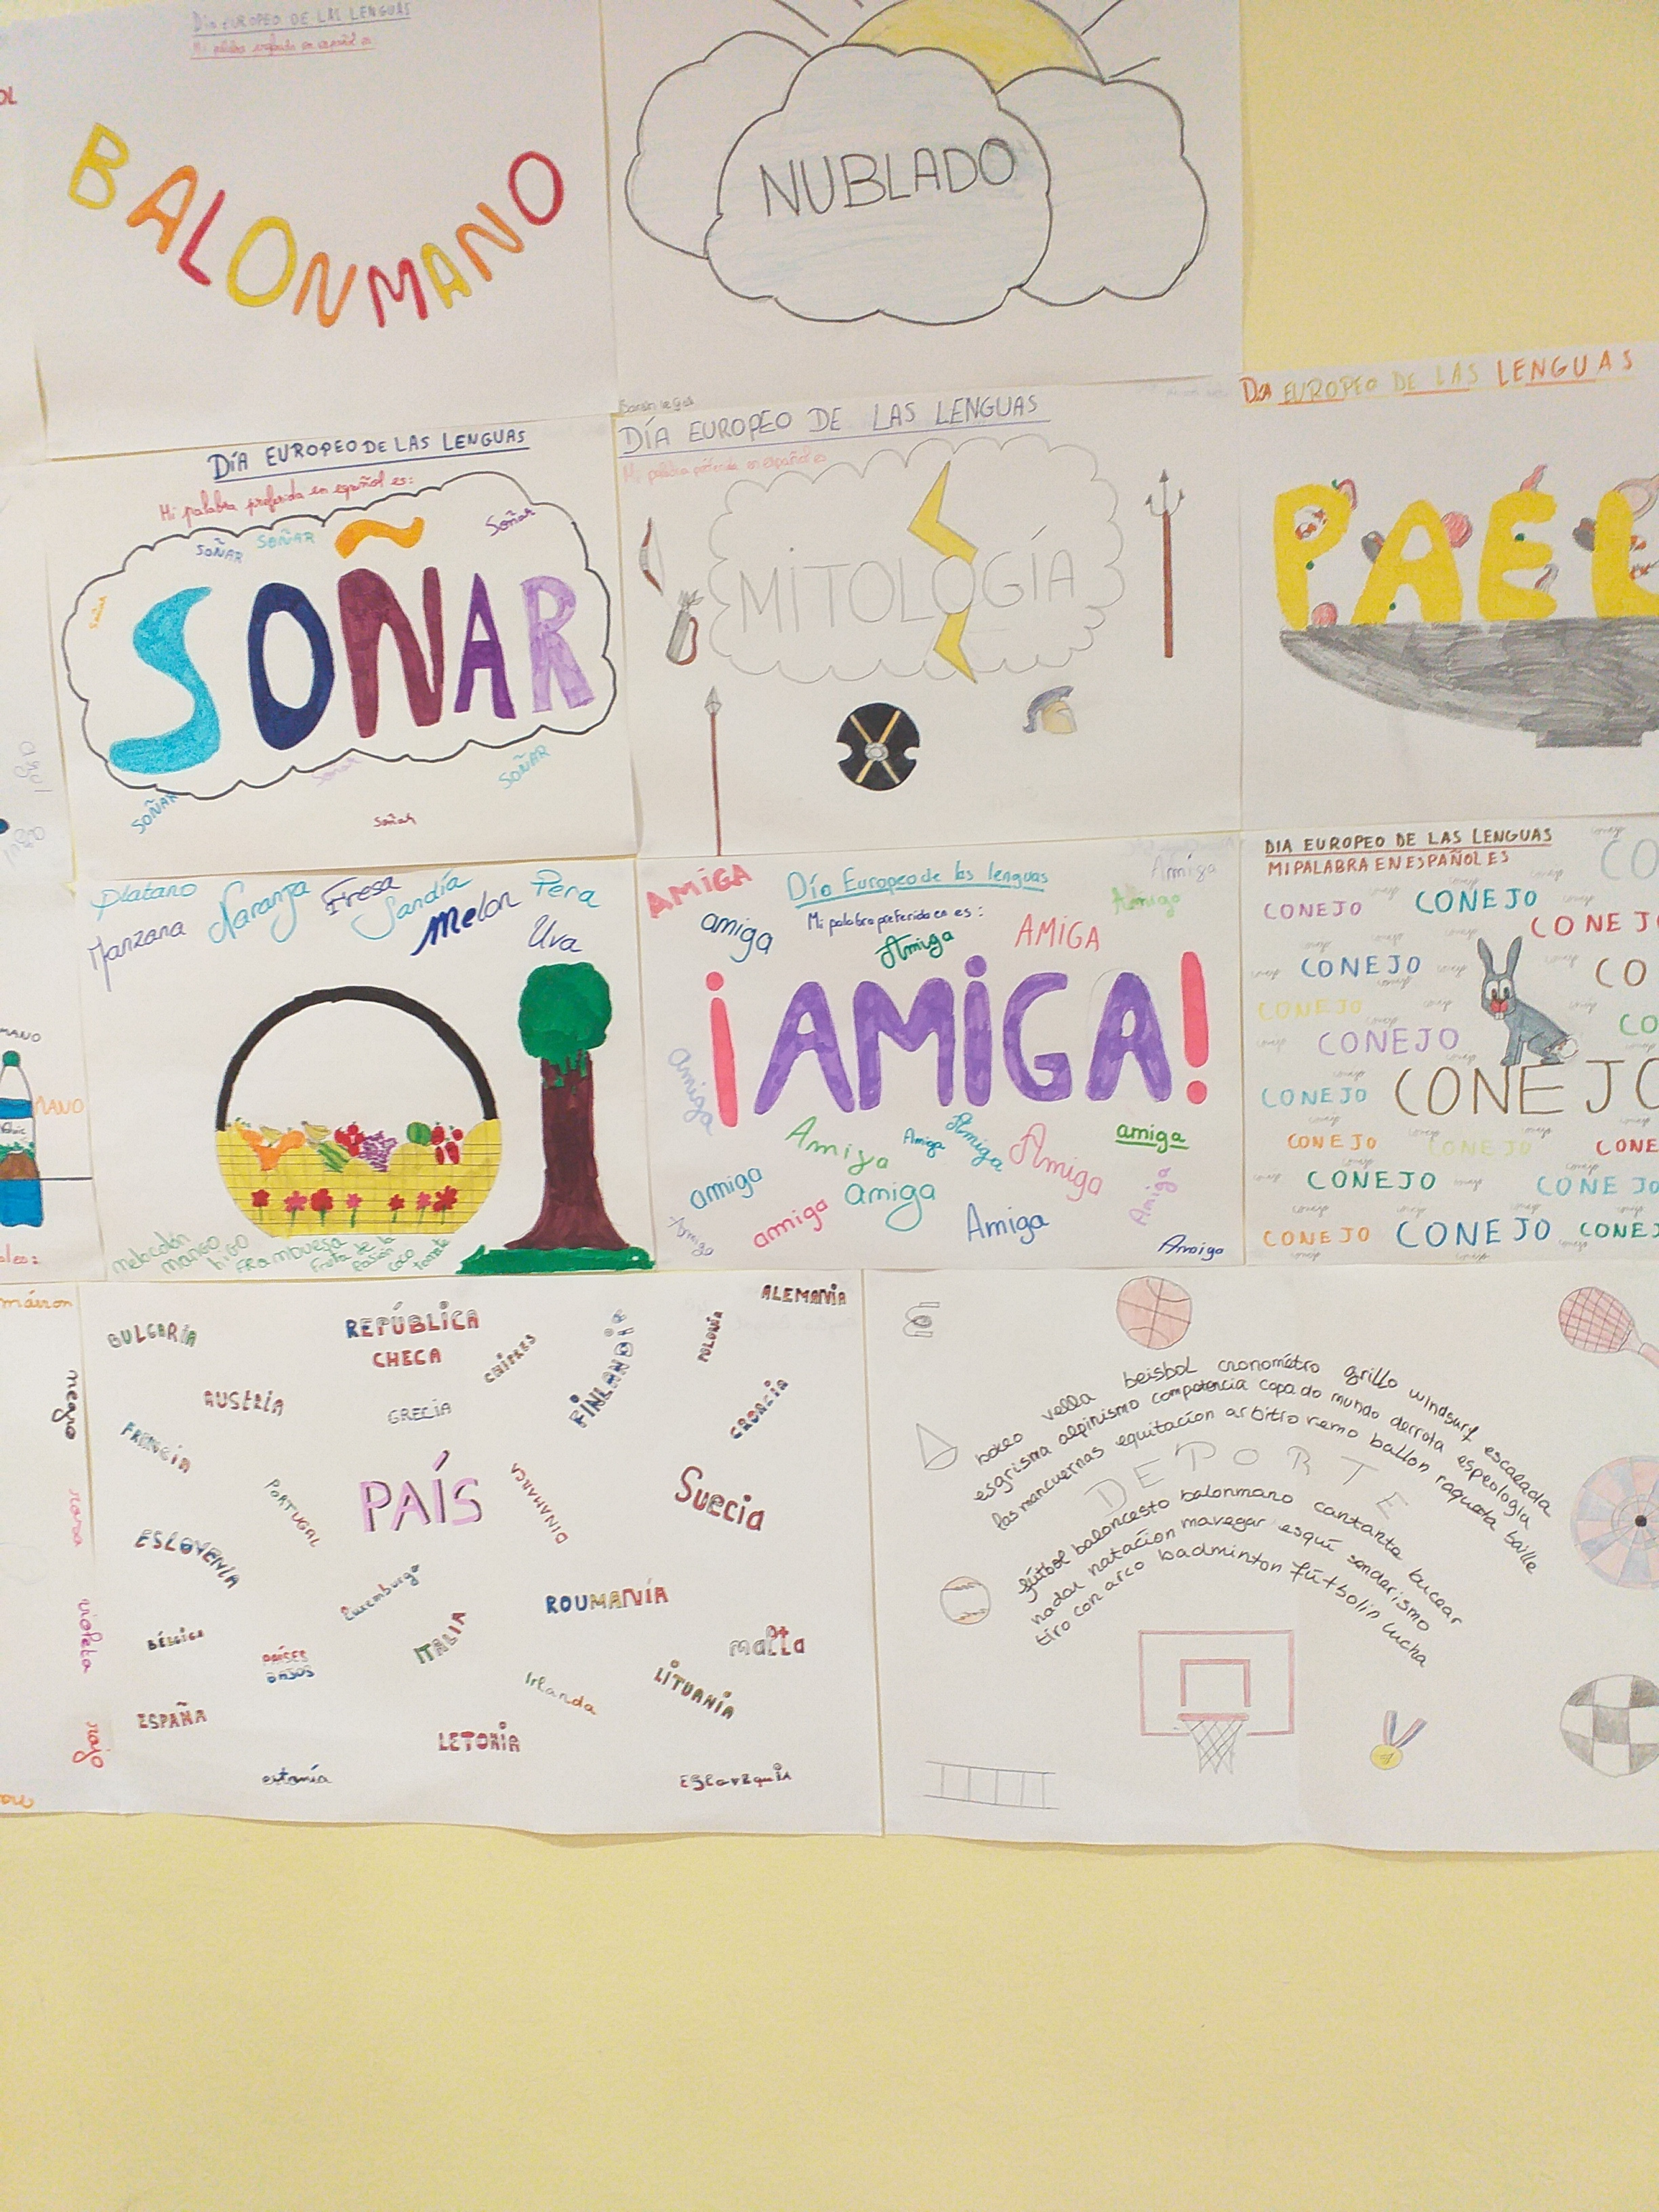 DÍA EUROPEO DE LAS LENGUAS
Mi palabra preferida en español es
BALONMANO
NUBLADO
DÍA EUROPEO DE LAS LENGUAS
Mi palabra preferida en español es:
SOÑAR
SOÑAR
Soñar
Soñar
SOÑAR
Soñar
SOÑAR
SOÑAR
Soñar
DÍA EUROPEO DE LAS LENGUAS
Mi palabra preferida en español es
MITOLOGÍA
DÍA EUROPEO DE LAS LENGUAS
PAEL
Platano
Naranja
Fresa
Sandía
Pera
Manzana
Melon
Uva
melocotón
mango
higo
FRambuesa
fruta de la
pasión
coco
tomate
AMIGA
Día Europeo de las lenguas
Amiga
amiga
Mi palabra preferida en es:
Amiga
Amiga
AMIGA
¡AMIGA!
Amiga
Amiga
Amiga
Amiga
Amiga
amiga
amiga
amiga
amiga
Amiga
Amiga
Amiga
Amiga
DIA EUROPEO DE LAS LENGUAS
MI PALABRA EN ESPAÑOL ES
CO
CONEJO
CONEJO
CONEJ
CONEJO
CO
CONEJO
CO
CONEJO
CONEJO
CONEJO
CONEJO
CONEJO
CONE
CONEJO
CONEJO
CONEJO
CONEJO
CONEJ
MANO
MANO
márron
negro
violeta
rojo
ALEMANIA
BULGARIA
REPÚBLICA
CHECA
CHIPRES
FINLANDIE
POLONIA
AUSTRIA
GRECIA
CROACIA
FRANCIA
PAÍS
PORTUGAL
DINAMARCA
Suecia
ESLOVENIA
Luxemburgo
ROUMANÍA
BÉLGICA
PAÍSES
BAJOS
ITALIA
malta
Irlanda
LITUANÍA
ESPAÑA
LETONIA
estonía
boxeo vella beisbol cronométro grillo windsurf escalada
esgrisma alpinismo competencia copa do mundo derrota espeologia
las mancuernas equitacíon arbitro remo ballon raqueta baille
DEPORTE
fútbol baloncesto balonmano cantante bucear
nadar natacíon mavegar esquí senderismo
tiro con arco badminton fútbolin lucha